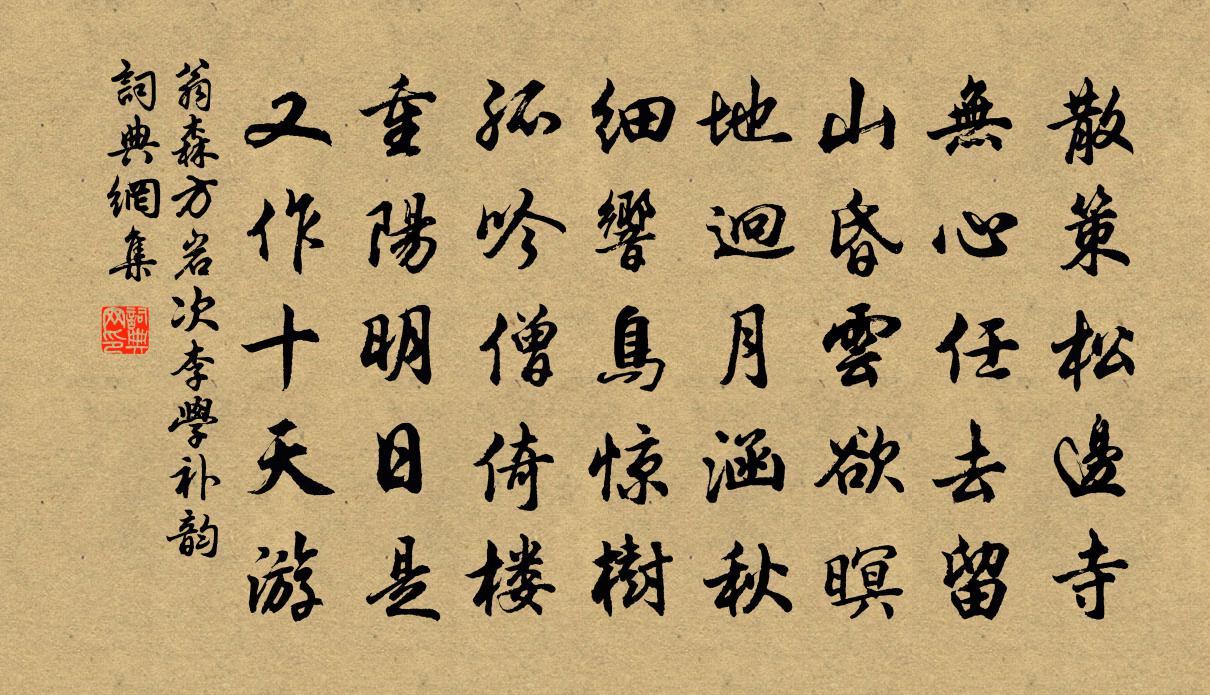 散策松邊寺
無心任去留
山昏雲欲暝
地迥月涵秋
細響鳥惊樹
孤吟僧倚楼
重陽明日是
又作十天游
翁森方岩次李學补韵
詞典網集
詞典网印